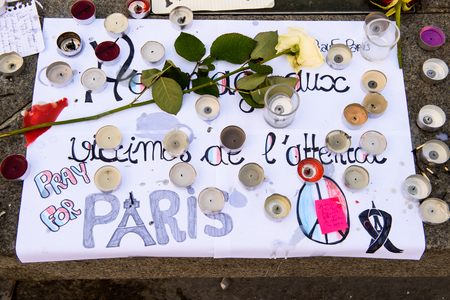 Hommage aux
victimes de l'attentat
PRAY
FOR
PARIS